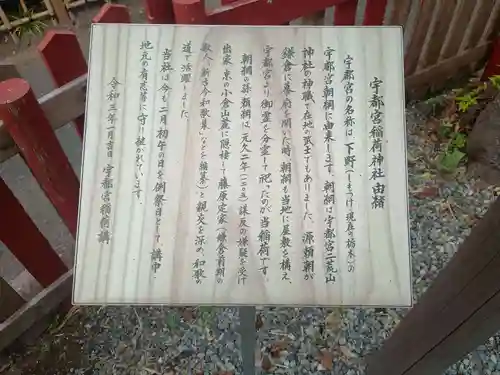 宇都宮稲荷神社由緒
宇都宮の名称は、下野(しもつけ・現在の栃木)の
宇都宮朝綱に由来します。朝綱は宇都宮二荒山
神社の神職で在地の武士でもありました。源頼朝が
鎌倉に幕府を開いた時、朝綱も当地に屋敷を構え、
宇都宮より御霊を分霊して祀ったのが当稲荷です。
朝綱の孫頼綱は、元久二年(一二〇五)謀反の嫌疑を受け
出家、京の小倉山麓に隠棲して藤原定家(鎌倉前期の
歌人・新古今和歌集などを編纂)と親交を深め、和歌の
道で活躍しました。
当社は今も二月初午の日を例祭日として、講中・
地元の有志等に守り継がれています。
令和三年一月吉日 宇都宮稲荷講